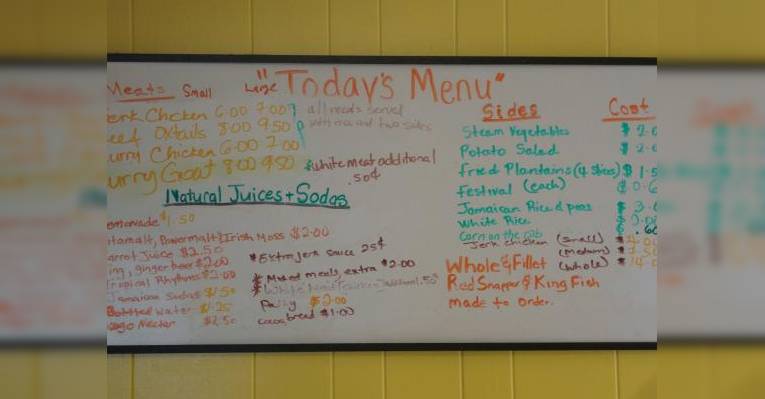 "Today's Menu"
Meats Small Large
erk Chicken 6.00 7.00 all meats served
eef Oxtails 8.00 9.50 with rice and two sides
urry Chicken 6.00 7.00
urry Goat 8.00 9.50 *white meat additional
.50¢
Natural Juices + Sodas
emonade $1.50
itamalt, Powermalt & Irish Moss $2.00
arrot Juice $2.50
ing, ginger beer $2.00
Tropical Rhythms $2.00
Jamaican Sodas $1.50
Bottled Water $1.25
ago Nectar $2.50
*Extra Jerk Sauce 25¢
*Mixed meals, extra $2.00
*White Meat Chicken Additional .50¢
Patty $2.00
coco bread $1.00
Sides Cost
Steam Vegetables $2.0
Potato Salad $2.0
Fried Plantains (4 slices) $1.5
Festival (each) $0.6
Jamaican Rice & peas $3.0
White Rice
Corn on the cob
Jerk chicken (small)
(Medium)
(Whole)
Whole & Fillet
Red Snapper & King Fish
made to order.